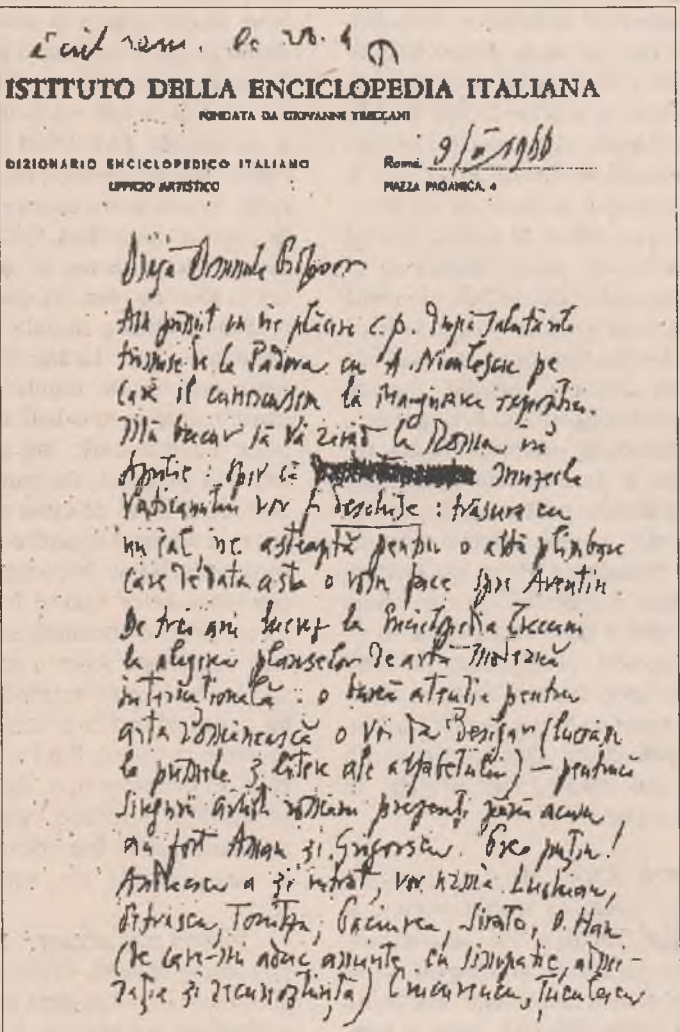 le 28. 4
ISTITUTO DELLA ENCICLOPEDIA ITALIANA
FONDATA DA GIOVANNI TRECCANI
DIZIONARIO ENCICLOPEDICO ITALIANO
UFFICIO ARTISTICO
Roma, 9/II 1966
PIAZZA PAGANICA, 4
Dragă Domnule Profesor
Am primit cu vie plăcere c.p. după salutările
trimise de la Padova cu A. Niculescu pe
care îl cunoscusem la
Mă bucur să vă văd la Roma în
Aprilie : sper că muzeele
Vaticanului vor fi deschise : trăsura cu
un cal ne așteaptă pentru o altă plimbare
care de data asta o vom face spre Aventin.
De trei ani lucrez la Enciclopedia Treccani
la alegerea planșelor de artă modernă
internațională : o bună atenție pentru
arta românească o voi da desigur (lucrăm
la primele 3 litere ale alfabetului) – pentrucă
singurii artiști români prezenți până acum
au fost Aman și Grigorescu. Prea puțin!
Andreescu a și intrat, vor urma Luchian,
Petrașcu, Tonitza, Paciurea, Șirato, O. Han
(de care-mi aduc aminte cu simpatie, admi-
rație și recunoștință) Ciucurencu, Țuculescu